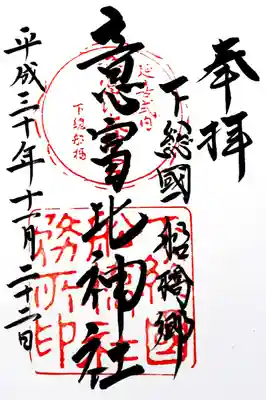 奉拝
下総國 船橋郷
意富比神社
平成三十年十一月二十二日
延喜式内
下総船橋
務所印